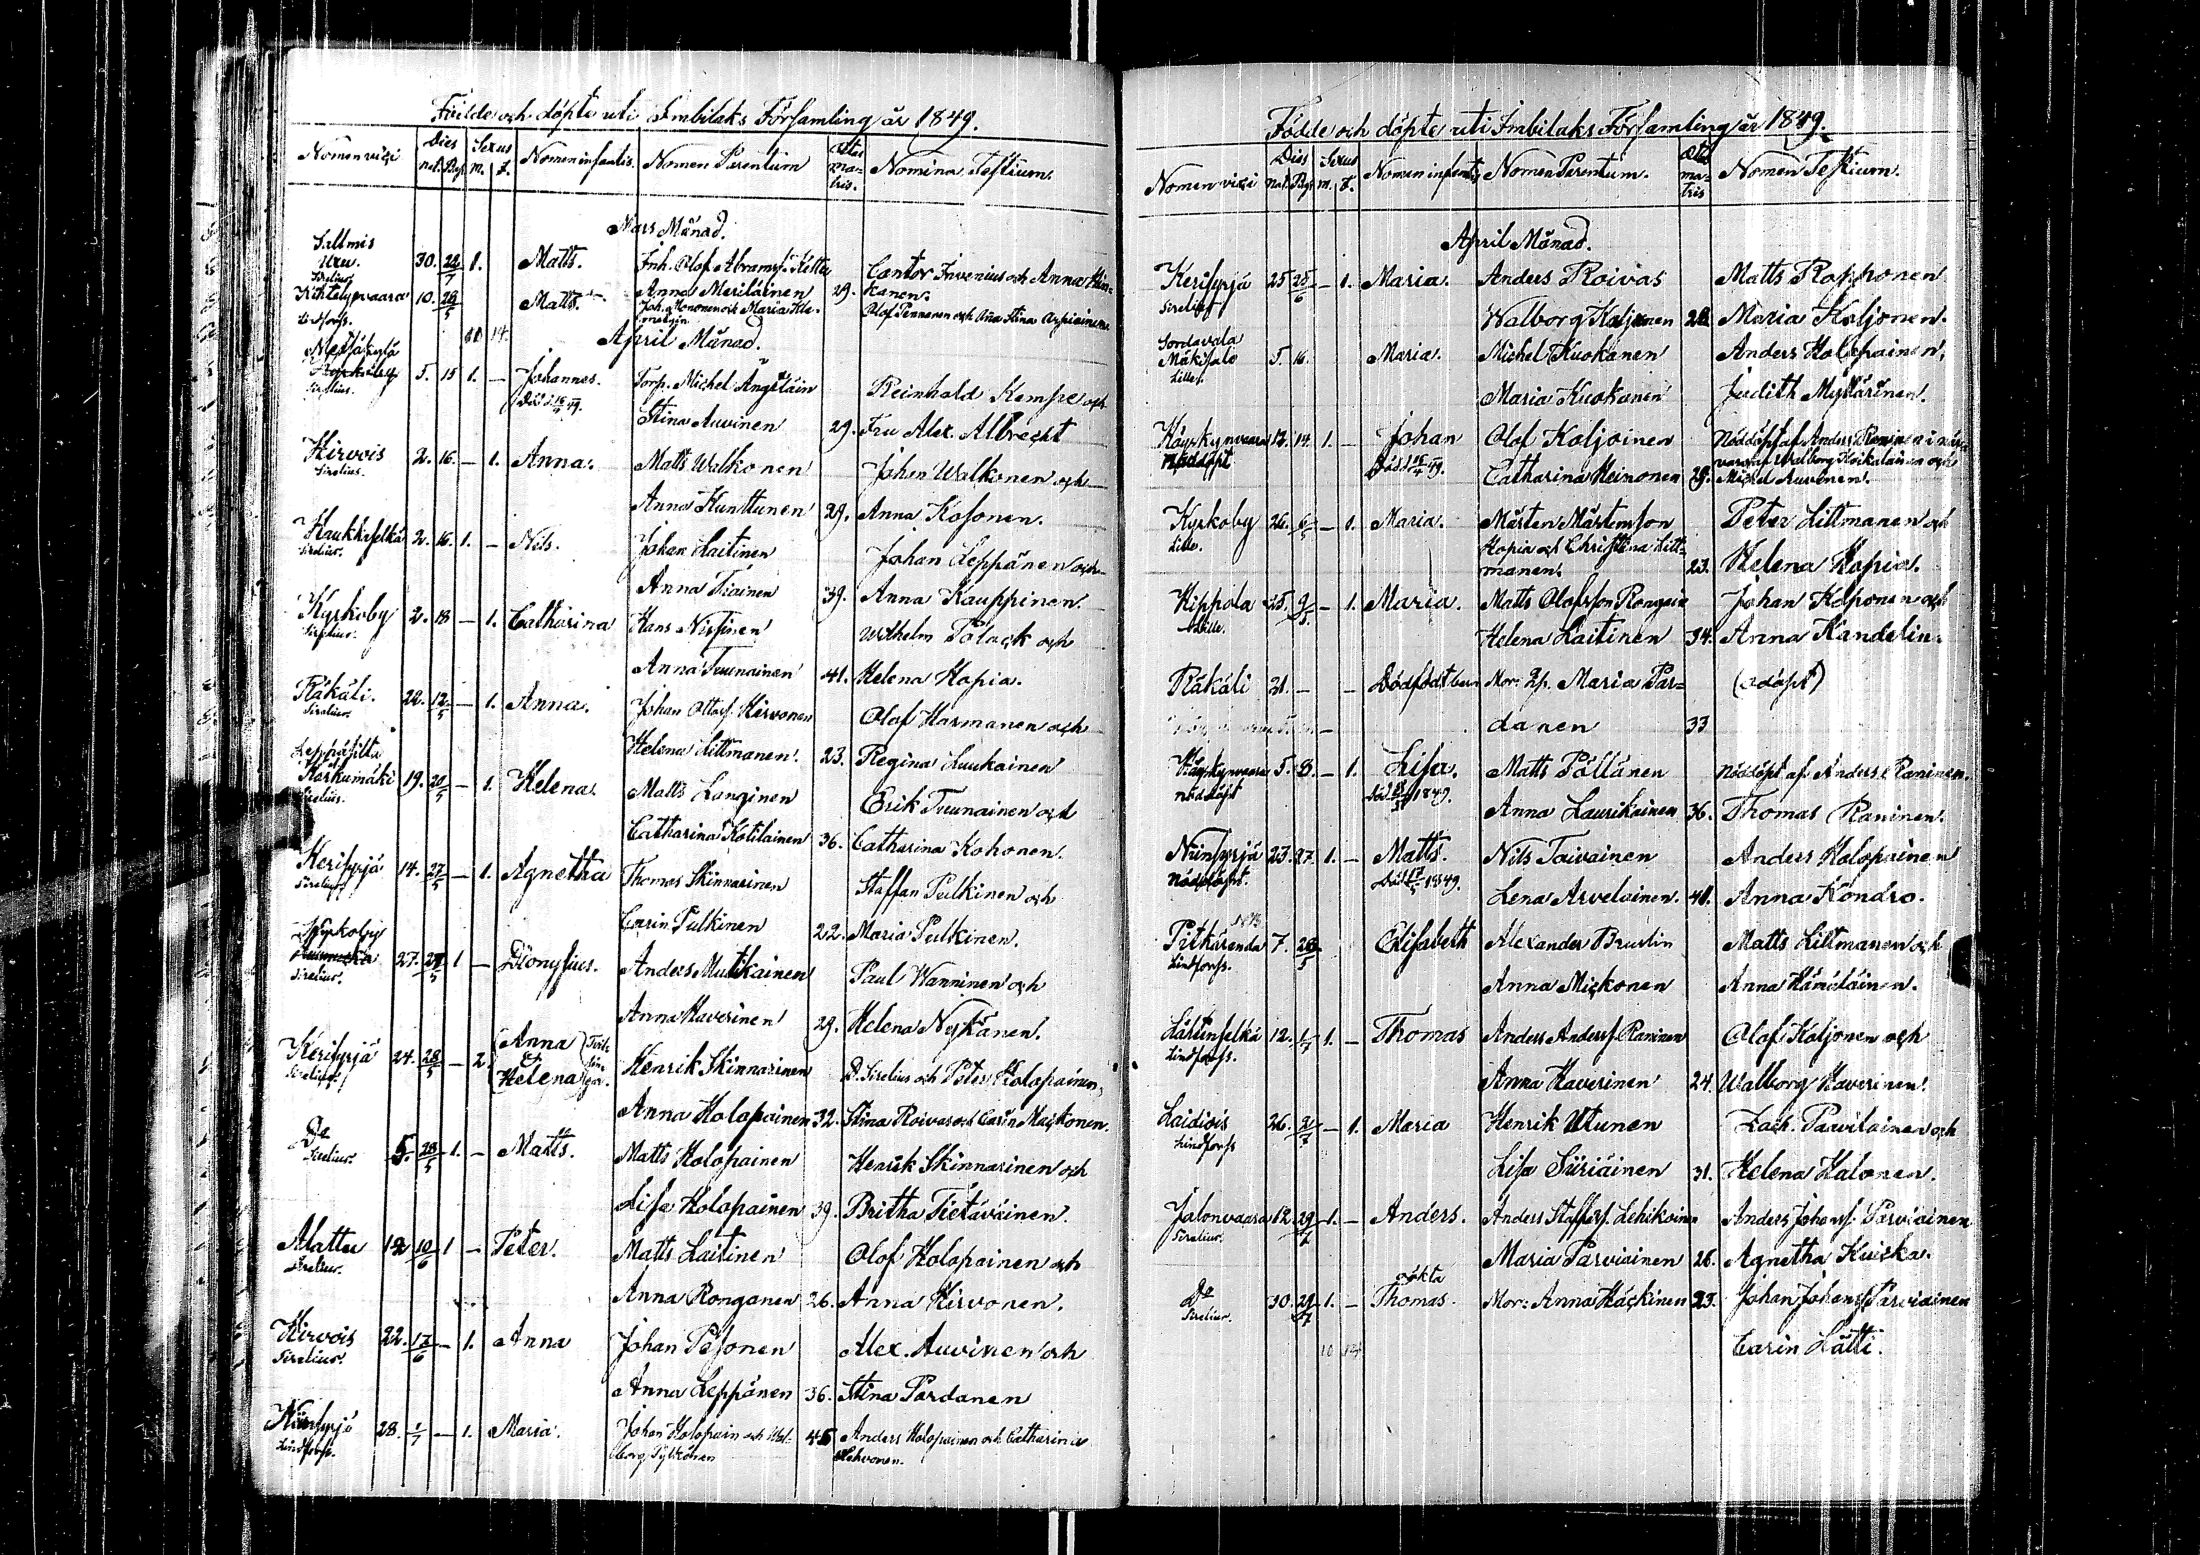 Födde och döpte uti Imbilaks Församling år 1849.
Nomen vici Dies nat. Bapt. Sexus m. f. Nomen infantis. Nomen Parentum Ætas ma-tris. Nomina Testium.
Mars Månad.
Sallmis
Uxu. 30. 22/7 1. Matts. Inh. Olof Abramss. Ketta Cantor Invenius och Anna
Sirelius Anna Meriläinen 29. kanen.
Kihtelysvaara 10. 28/5 Matts. Joh. Mononen och Maria Olof Pennanen och Stina Arpiainen
Lindforss. 10 14.
April Månad.
5. 15 1. — Johannes. Torp. Michel Angeläin Reinhold Kempe och
Sirelius. Död d. 16/4 49. Stina Auvinen 29. Fru Alex. Albrecht
Hirvois 2. 16. — 1. Anna. Matts Walkonen Johan Walkonen och
Sirelius. Anna Kunttunen 29. Anna Kosonen.
Haukkaselkä 2. 16. 1. — Nils. Johan Laitinen Johan Leppänen och
Sirelius. Anna Tiainen 39. Anna Kauppinen.
Kyrkoby 2. 18 — 1. Catharina Hans Nissinen Wilhelm Polack och
Sirelius. Anna Tuunainen 41. Helena Hopia.
Räkäli. 22. 12/5 — 1. Anna. Johan Ottoss. Hirvonen Olof Harmanen och
Sirelius. Helena Littmanen. 23. Regina Luukainen
Leppäsilta
Korkumäki 19. 20/5 — 1. Helena. Matts Langinen Erik Tuunainen och
Sirelius. Catharina Kotilainen 36. Catharina Kohonen.
Kerisyrjä 14. 27/5 — 1. Agnetha Thomas Skinnarinen Staffan Pulkinen och
Sirelius. Carin Pulkinen 22. Maria Pulkinen.
Kyrkoby
27. 27/5 1 — Dionysius. Anders Mutikainen Paul Wanninen och
Sirelius. Anna Haverinen 29. Helena Nykänen.
Kerisyrjä 24. 28/5 — 2 Anna & Helena Tvil-lin-gar. Henrik Skinnarinen D. Sirelius och Peter Holopainen,
Sirelius. Anna Holopainen 32. Stina Roivas och Carin Mackonen.
Do 5. 28/5 1. — Matts. Matts Holopainen Henrik Skinnarinen och
Sirelius. Lisa Holopainen 39. Britha Tietäväinen.
Alattu 12 10/6 1 — Peter. Matts Laitinen Olof Holopainen och
Sirelius. Anna Ronganen 26. Anna Hirvonen.
Hirvois 22. 17/6 — 1. Anna Johan Pesonen Alex. Auvinen och
Sirelius. Anna Leppänen 36. Stina Pardanen
28. 1/7 — 1. Maria. Johan Holopain och Wal- 45 Anders Holopainen och Catharina
Lindforss. borg Pylkönen Hehvonen.
Födde och döpte uti Imbilaks Församling år 1849.
Nomen vici Dies nat. Bapt. Sexus m. f. Nomen infantis Nomen Parentum. Ætas ma-tris Nomen Testium.
April Månad.
Kerisyrjä 25 25/6 — 1. Maria. Anders Roivas Matts Ropponen
Sirelius Walborg Koljonen 28. Maria Koljonen.
Sordavala
Mäkisalo 5. 16. Maria. Michel Kuokanen Anders Holopainen,
Lille. Maria Kuokanen Judith Myllärinen.
12. 14. 1. — Johan Olof Koljoinen Nöddöpt af Anders Raninen i när-
Nöddöpt Död d. 16/4 49. Catharina Heinonen 29. varo af Walborg Koikalainen och
Michel Auvinen.
Kyrkoby 26. 6/5 — 1. Maria. Mårten Mårtensson Peter Littmanen och
Lille. Hopia och Christina Litt-
manen. 23. Helena Hopia.
Hippola 25. 9/5 — 1. Maria. Matts Olofsson Rongain Johan Koponen och
Lille. Helena Laitinen 34. Anna Kandelin.
Räkäli 21. — — Dödfödt barn Mor: Pp. Maria Par- (odöpt)
danen 33
5. 8. — 1. Lisa. Matts Pöllänen Nöddöpt af Anders Raninen.
nöddöpt 1849. Anna Laurikainen 36. Thomas Raninen.
Niinisyrjä 23. 27. 1. — Matts. Nils Toivainen Anders Holopainen
Nöddöpt. 1849. Lena Arvelainen. 40. Anna Kondro.
Pitkäranda 7. 28/5 Elisabeth Alexander Brustin Matts Littmanen och
Lindforss. Anna Mickonen Anna Hämäläinen.
12. 1/7 1. — Thomas Anders Anderss. Raninen Olof Koljonen och
Lindforss. Anna Haverinen 24. Walborg Haverinen.
Laidiois 26. 2/7 — 1. Maria Henrik Utunen Zach. Paavilainen och
Lindforss Lisa Siiriäinen 31. Helena Halonen.
Jalonvaara 12. 29/7 1. — Anders. Anders Staffass. Lehikoin Anders Johanss. Parviainen
Sirelius. Maria Parviainen 26. Agnetha Kuiska.
oäkta
Do 30. 29/7 1. — Thomas. Mor: Anna Häckinen 23. Johan Johanss. Parviainen
Sirelius. Carin Lätti.
10 14